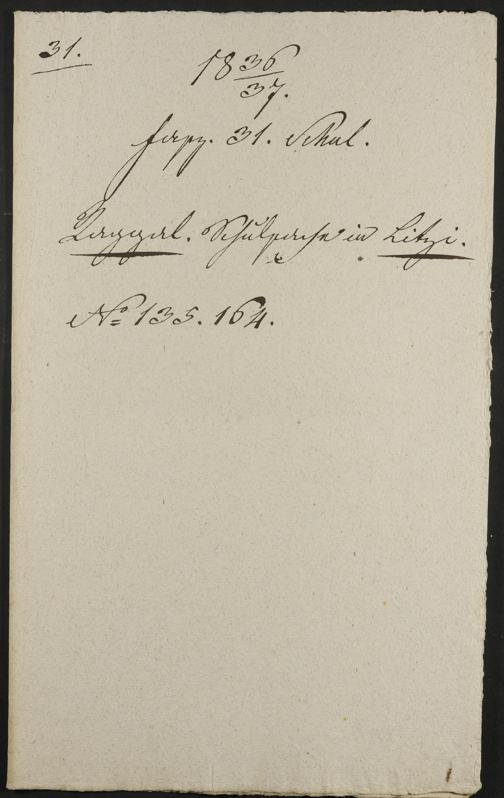 31.
18 36/37.
fasz. 31. Schul.
Raggal. Schulsache in Litzi.
No 135. 164.